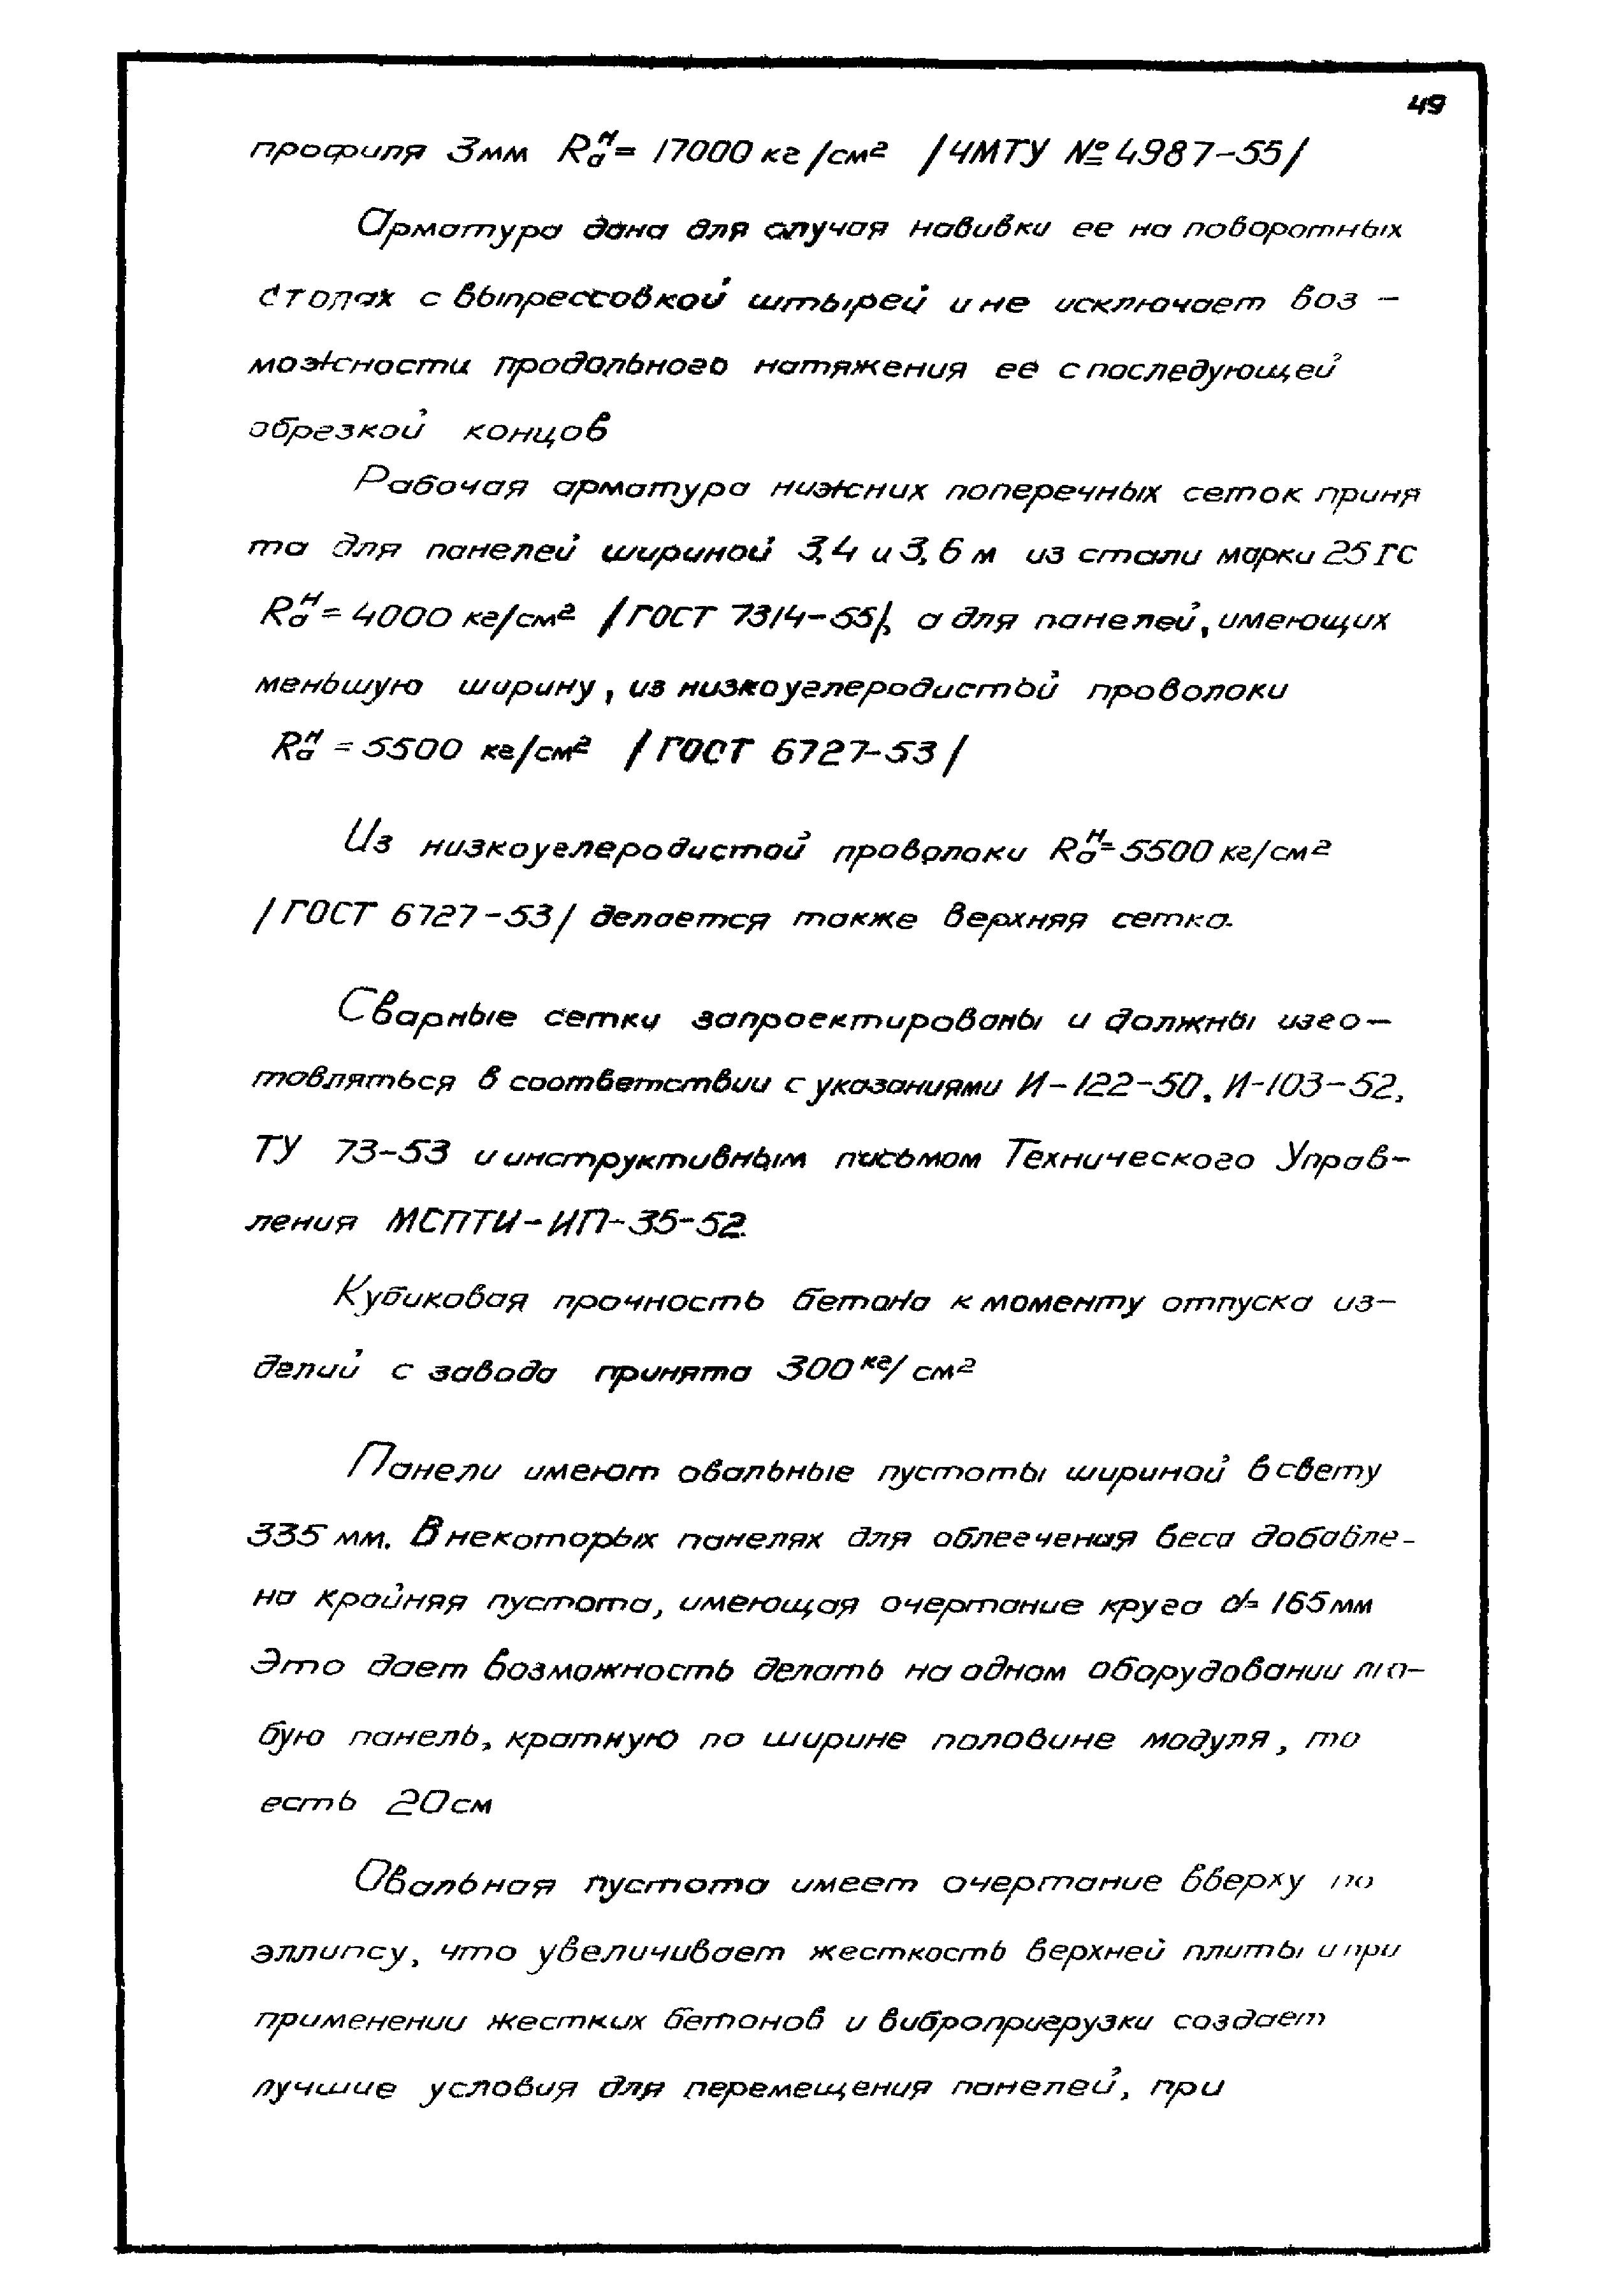 49
профиля 3мм Rₐᴴ= 17000 кг/см² /ЧМТУ № 4987-55/
Арматура дана для случая навивки ее на поворотных
столах с выпрессовкой штырей и не исключает воз -
можности продольного натяжения ее с последующей
обрезкой концов
Рабочая арматура нижних поперечных сеток приня
та для панелей шириной 3,4 и 3,6 м из стали марки 25ГС
Rₐᴴ = 4000 кг/см² /ГОСТ 7314-55/, а для панелей, имеющих
меньшую ширину, из низкоуглеродистой проволоки
Rₐᴴ = 5500 кг/см² /ГОСТ 6727-53/
Из низкоуглеродистой проволоки Rₐᴴ= 5500 кг/см²
/ГОСТ 6727-53/ делается также верхняя сетка.
Сварные сетки запроектированы и должны изго-
товляться в соответствии с указаниями И-122-50, И-103-52,
ТУ 73-53 и инструктивным письмом Технического Управ-
ления МСПТИ-ИП-35-52.
Кубиковая прочность бетона к моменту отпуска из-
делий с завода принята 300 кг/см²
Панели имеют овальные пустоты шириной в свету
335 мм. В некоторых панелях для облегчения веса добавле-
на крайняя пустота, имеющая очертание круга d= 165 мм
Это дает возможность делать на одном оборудовании лю-
бую панель, кратную по ширине половине модуля, то
есть 20 см
Овальная пустота имеет очертание вверху по
эллипсу, что увеличивает жесткость верхней плиты и при
применении жестких бетонов и вибропригрузки создает
лучшие условия для перемещения панелей, при